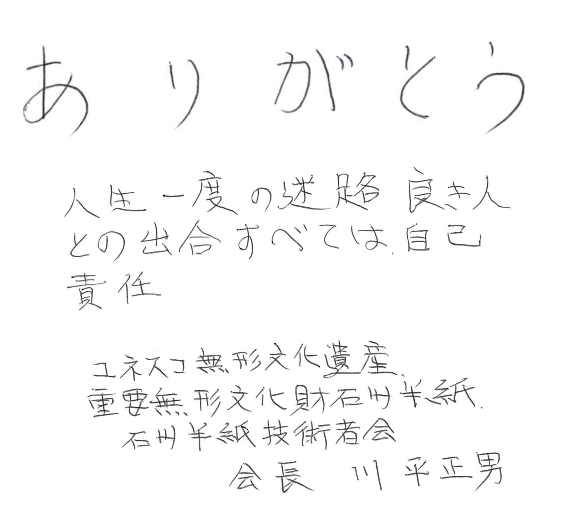 ありがとう
人生一度の迷路 良き人
との出合すべては、自己
責任
ユネスコ無形文化遺産、
重要無形文化財石州半紙、
石州半紙技術者会
会長 川平正男